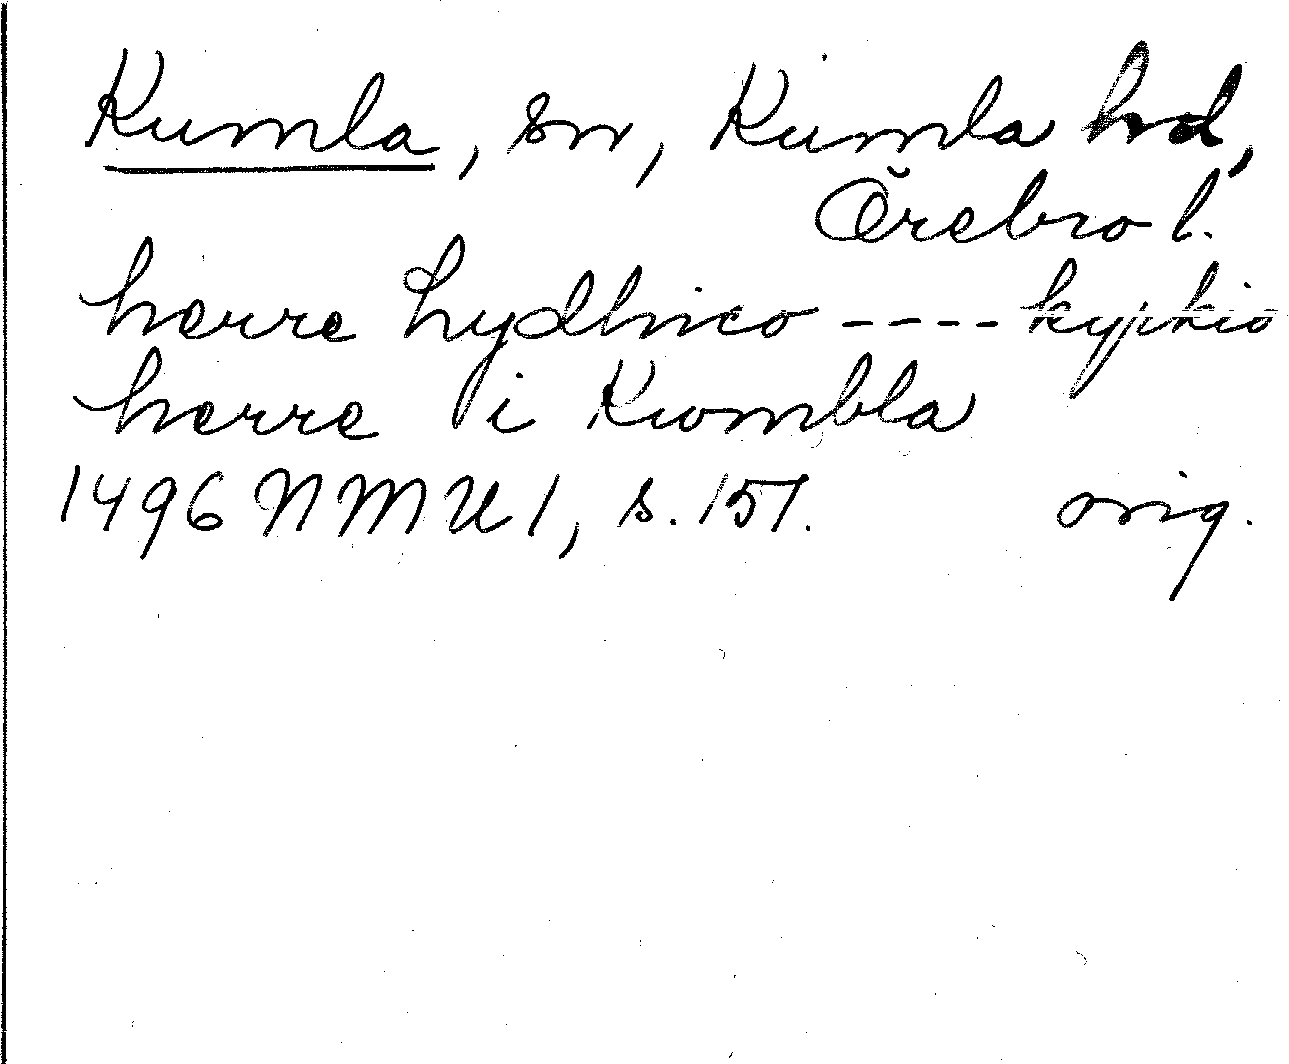 Kumla, sn, Kumla hd,
Örebro l.
herre hydhneo ---- kyrkio
herre i Kwmbla
1496 NMU 1, s. 157. orig.